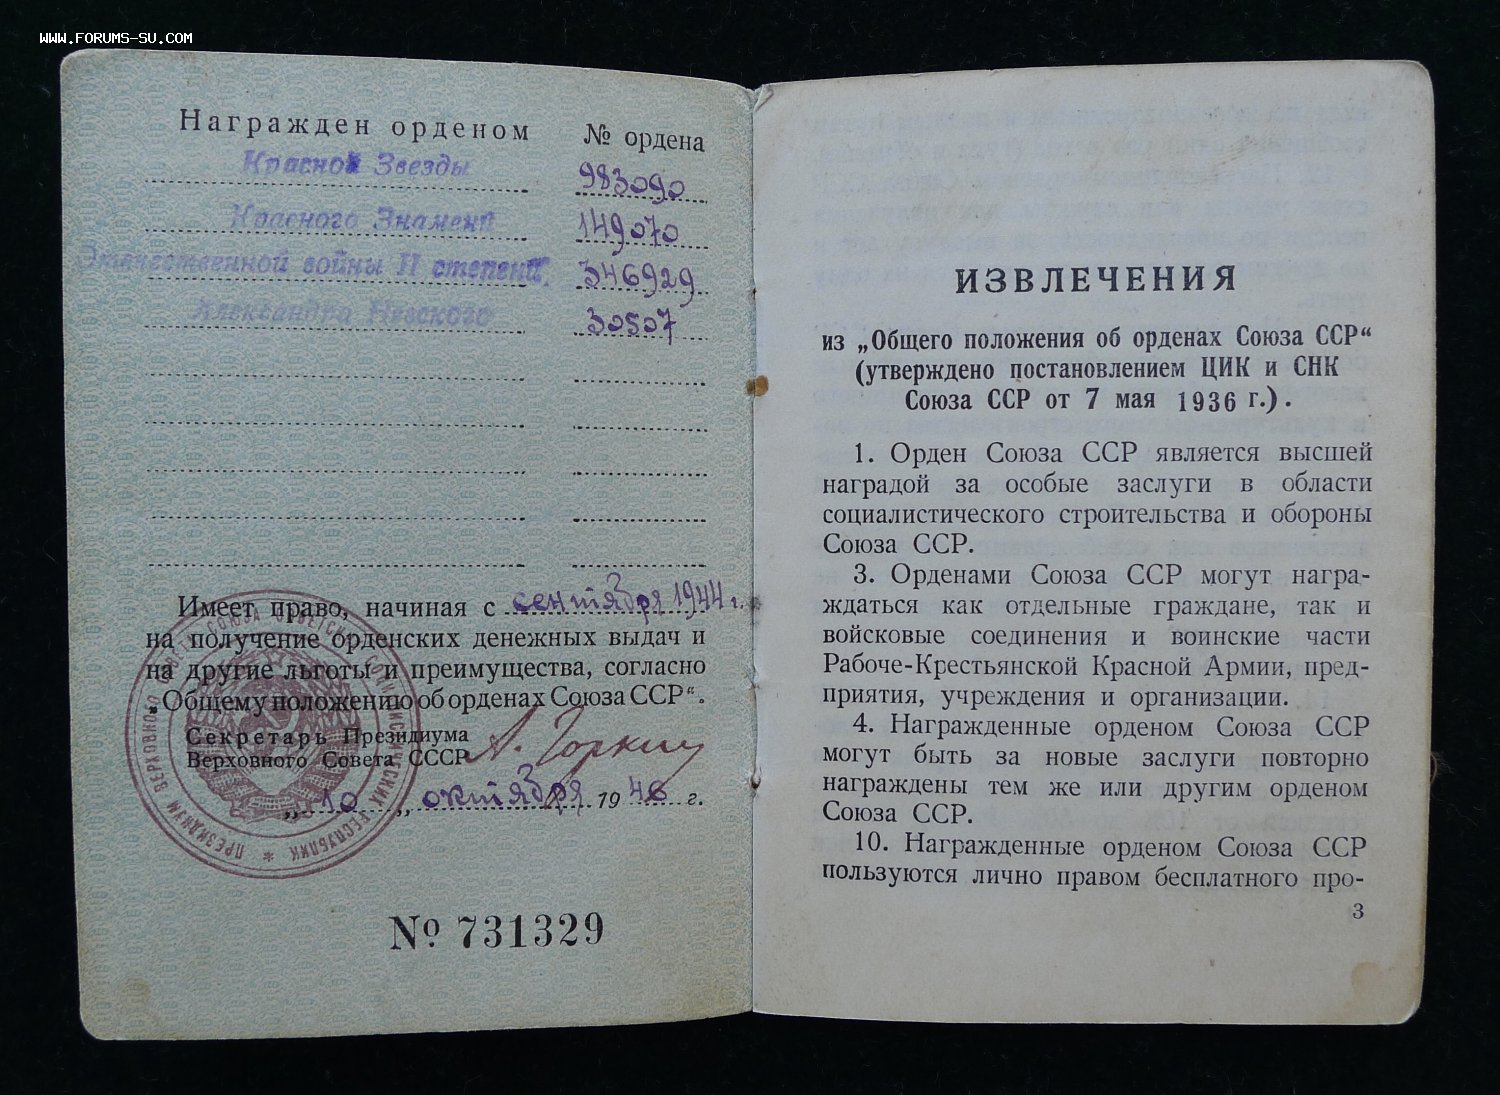 WWW.FORUMS-SU.COM
Награжден орденом № ордена
Красной Звезды 983090
Красного Знамени 149070
Отечественной войны II степени 346929
Александра Невского 30507
Имеет право, начиная с сентября 1944 г.
на получение орденских денежных выдач и
на другие льготы и преимущества, согласно
„Общему положению об орденах Союза ССР“.
Секретарь Президиума
Верховного Совета СССР А. Горкин
„10„ октября 1946 г.
ПРЕЗИДИУМ ВЕРХОВНОГО СОВЕТА СОЮЗА СОВЕТСКИХ СОЦИАЛИСТИЧЕСКИХ РЕСПУБЛИК *
№ 731329
ИЗВЛЕЧЕНИЯ
из „Общего положения об орденах Союза ССР“
(утверждено постановлением ЦИК и СНК
Союза ССР от 7 мая 1936 г.).
1. Орден Союза ССР является высшей
наградой за особые заслуги в области
социалистического строительства и обороны
Союза ССР.
3. Орденами Союза ССР могут награ-
ждаться как отдельные граждане, так и
войсковые соединения и воинские части
Рабоче-Крестьянской Красной Армии, пред-
приятия, учреждения и организации.
4. Награжденные орденом Союза ССР
могут быть за новые заслуги повторно
награждены тем же или другим орденом
Союза ССР.
10. Награжденные орденом Союза ССР
пользуются лично правом бесплатного про-
3